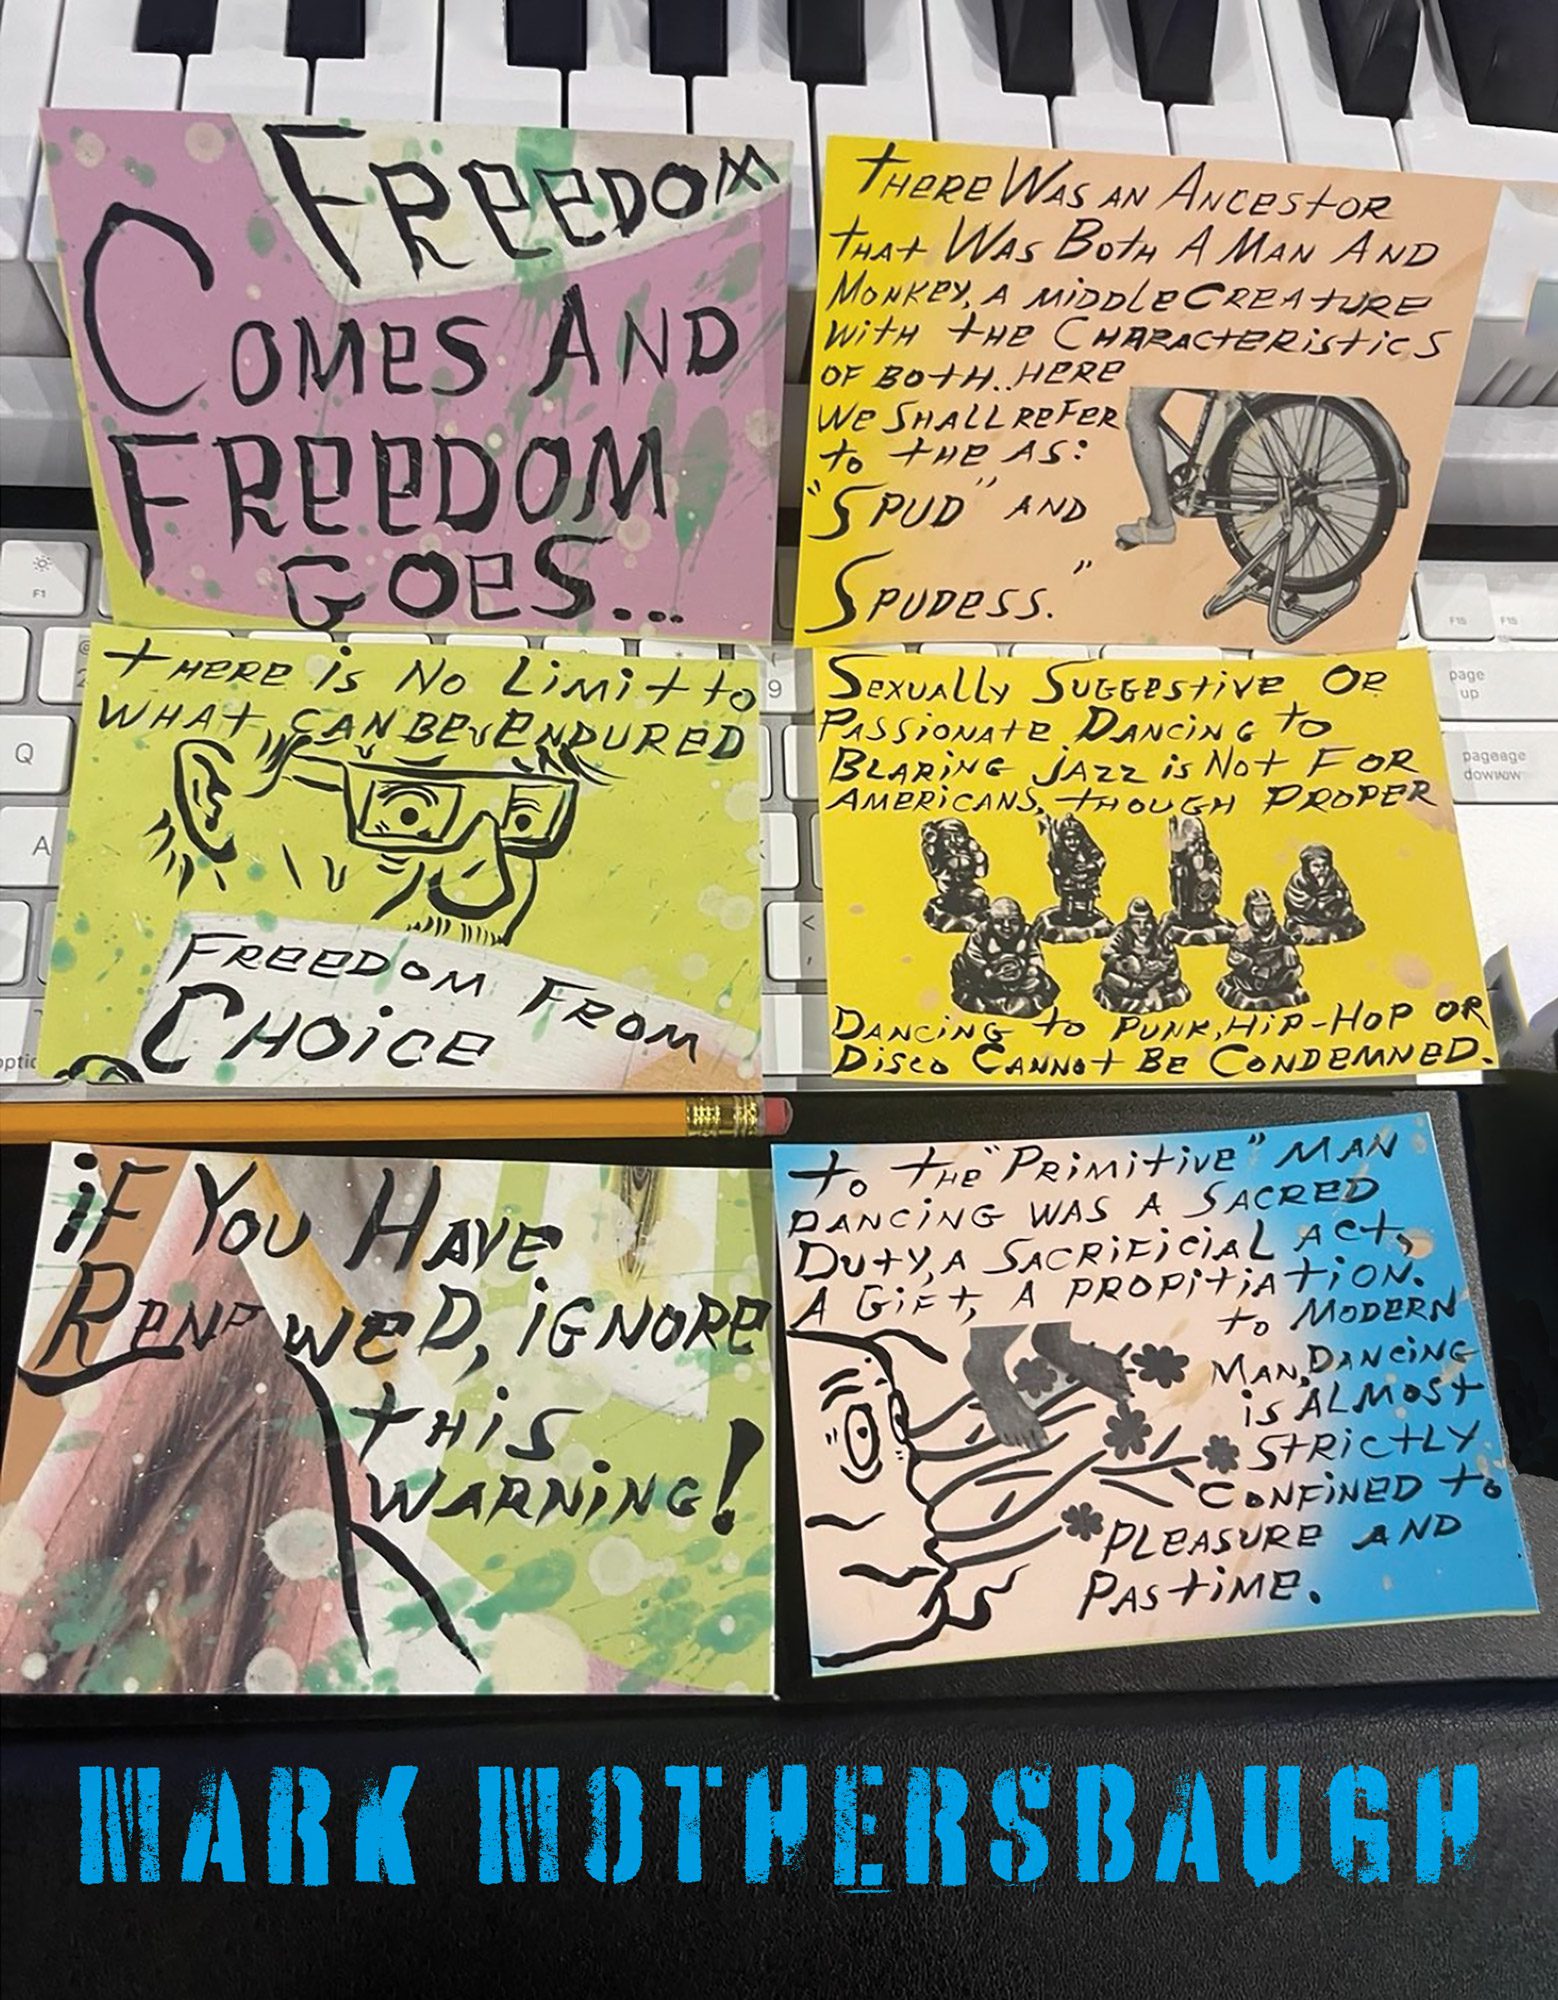 FREEDOM
COMES AND
FREEDOM
GOES...
THERE WAS AN ANCESTOR
THAT WAS BOTH A MAN AND
MONKEY, A MIDDLE CREATURE
WITH THE CHARACTERISTICS
OF BOTH.. HERE
WE SHALL REFER
TO THE AS:
"SPUD" AND
SPUDESS."
THERE IS NO LIMIT TO
WHAT CAN BE ENDURED
FREEDOM FROM
CHOICE
SEXUALLY SUGGESTIVE OR
PASSIONATE DANCING TO
BLARING JAZZ IS NOT FOR
AMERICANS, THOUGH PROPER
DANCING TO PUNK, HIP-HOP OR
DISCO CANNOT BE CONDEMNED.
IF YOU HAVE
RENEWED, IGNORE
THIS
WARNING!
TO THE "PRIMITIVE" MAN
DANCING WAS A SACRED
DUTY, A SACRIFICIAL ACT,
A GIFT, A PROPITIATION.
TO MODERN
MAN, DANCING
IS ALMOST
STRICTLY
CONFINED TO
PLEASURE AND
PASTIME.
F1
Q
A
9
page
up
F15
option
MARK MOTHERSBAUGH